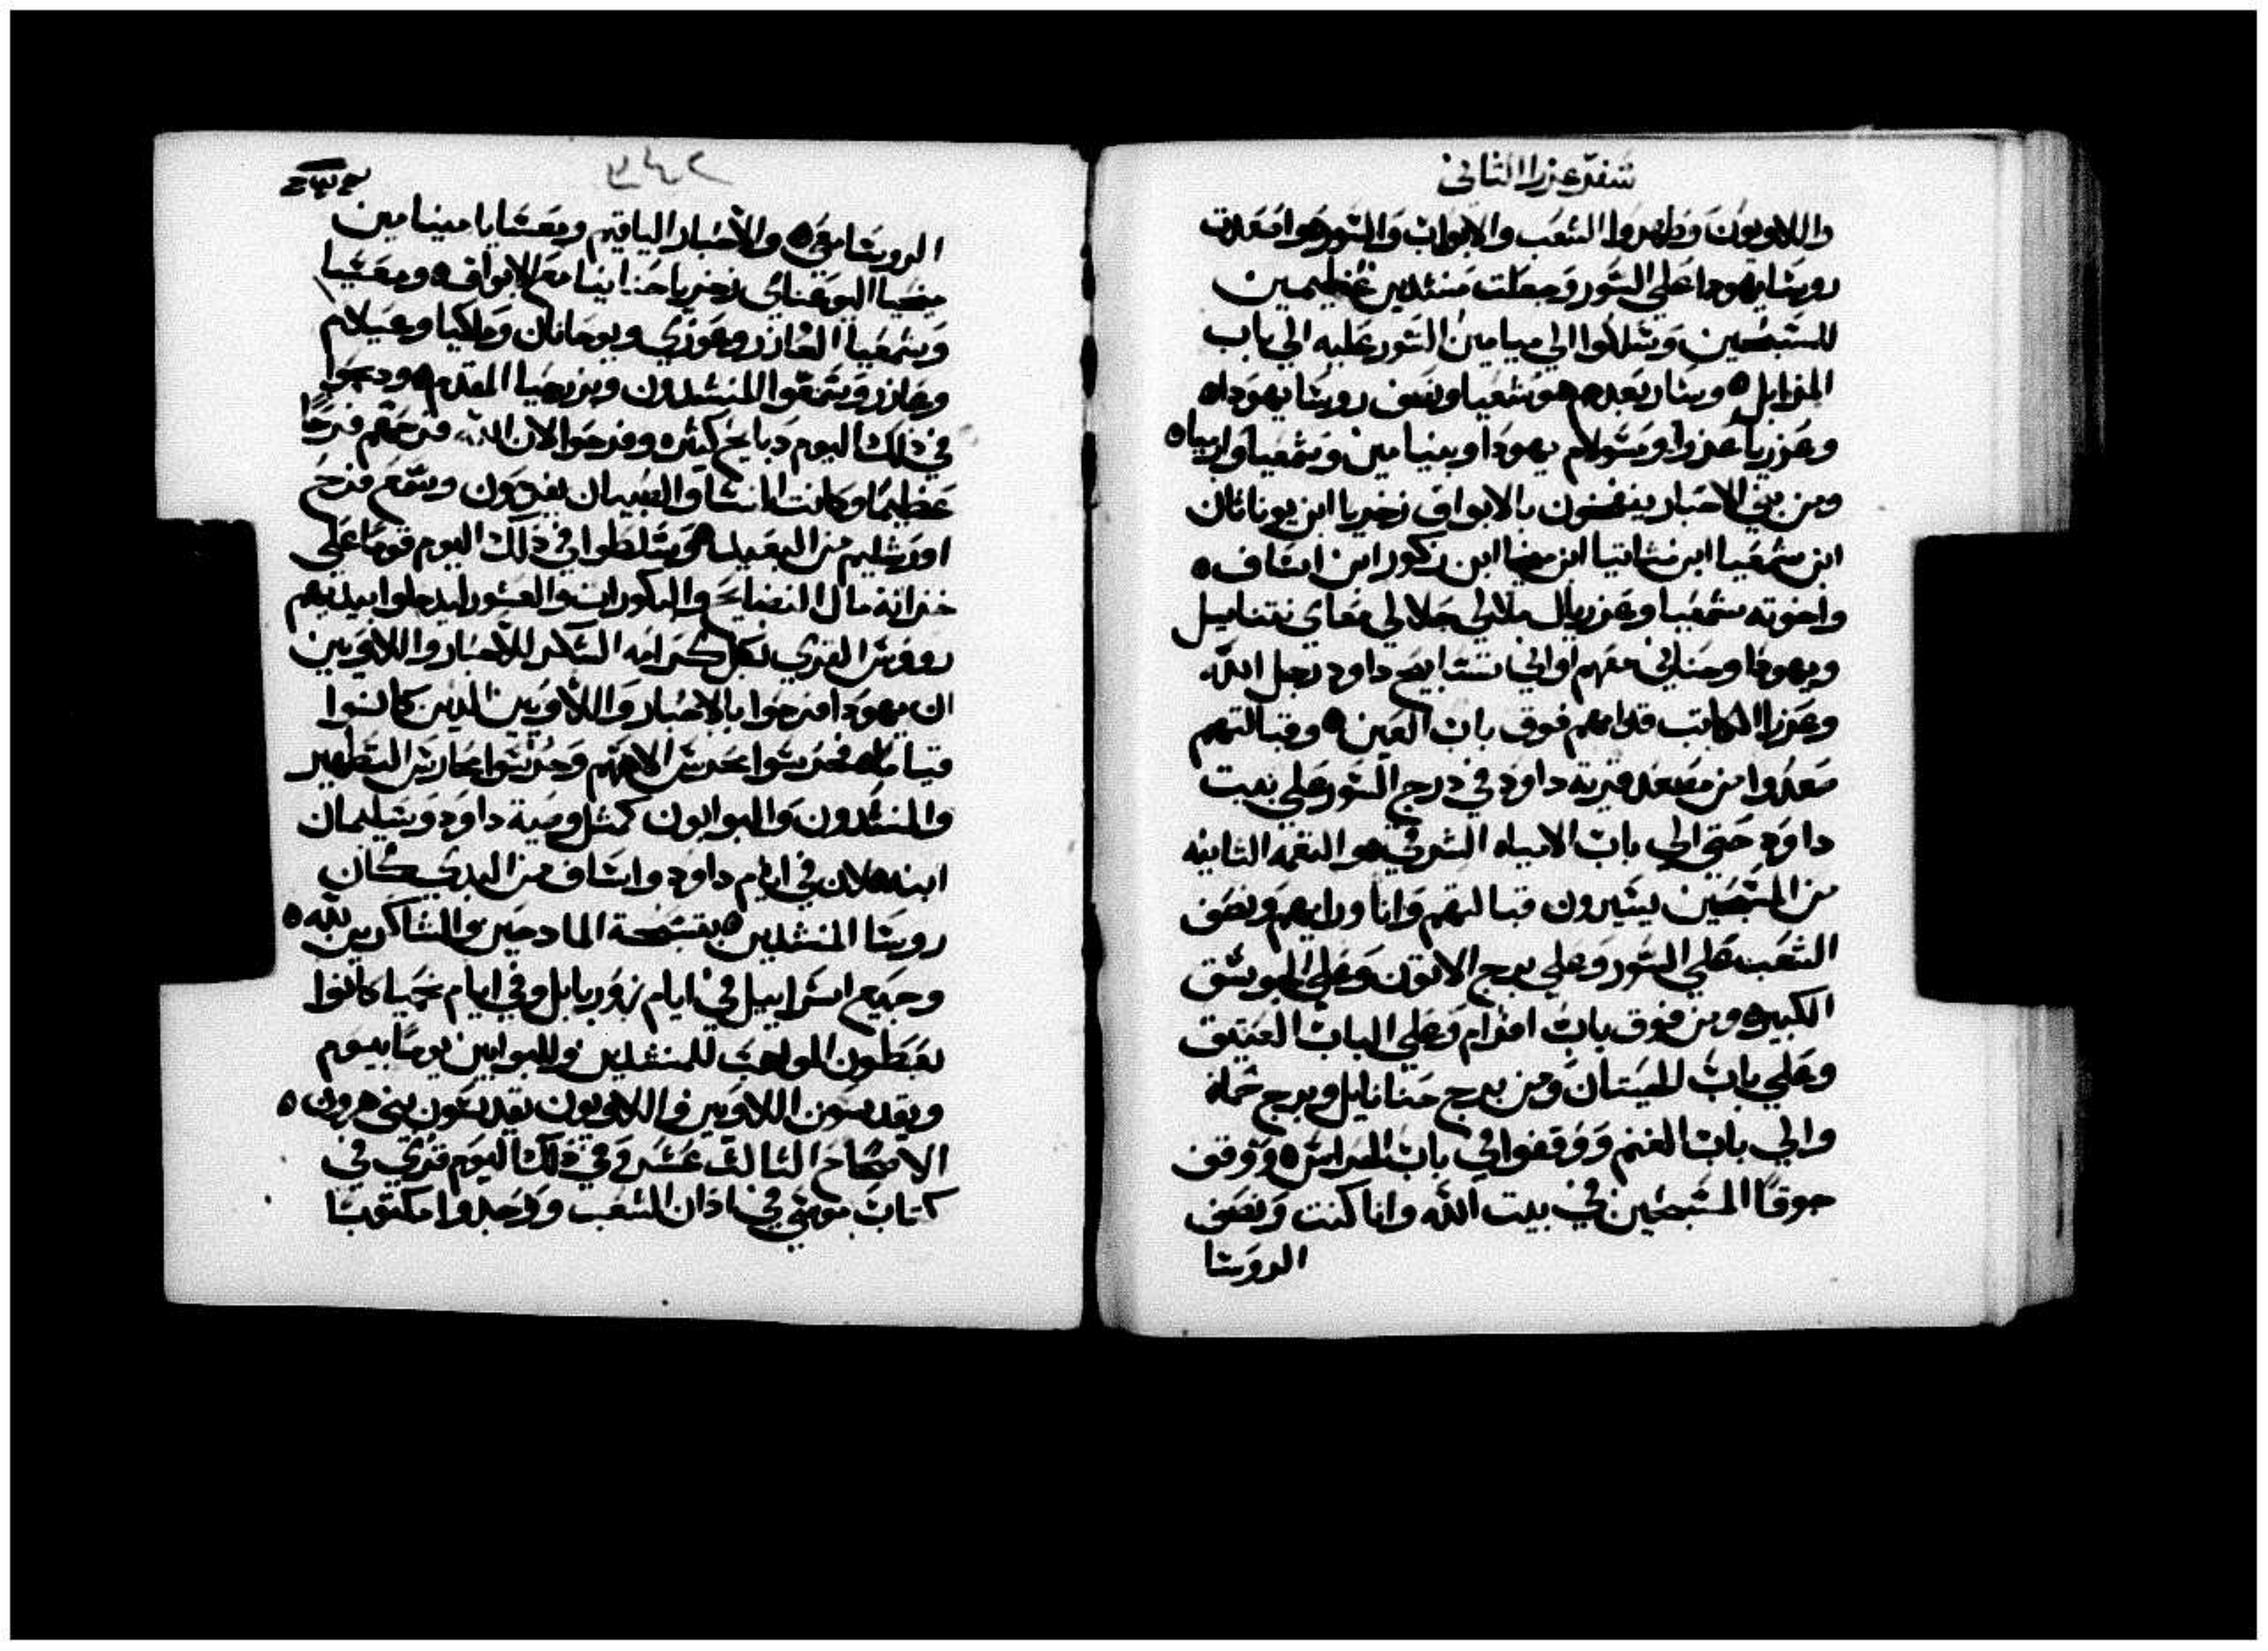 سفر عزرا الثاني
واللاويون وطهروا الشعب والابواب والسور ٥ واصعدت
رويسا يهودا علي السور وجعلت منشدين عظيمين
للمسبحين وسلكوا الي ميامين السور عليه الي باب
المزابل ٥ وسار بعدهم هوشعيا ونصف رويسا يهودا ٥
وعزريا عزرا ومسولام يهودا وبنيامين وسمعيا وارميا ٥
ومن بني الاحبار ينفخون بالابواق زخريا ابن يوناثان
ابن سمعيا ابن متانيا ابن ميخا ابن زكور ابن اساف ٥
واخوته سمعيا وعزرياىل ملالي جلالي معاي نتنايىل
ويهودا وحناني معهم اواني تسابيح داود رجل الله
وعزرا الكاتب قدامهم فوق باب العين ٥ وقبالتهم
صعدوا من مصعد قرية داود في درج السور علي بيت
داود حتي الي باب الامياه الشرقي ٥ والنغمه الثانيه
من المسبحين يسيرون قبالتهم وانا ورايهم ونصف
الشعب علي السور وعلي برج الاتون وعلي الجوسق
الكبير ٥ ومن فوق باب افرام وعلي الباب العتيق
وعلي باب الحيتان ومن برج حنانايل وبرج حماه
والي باب الغنم ووقفوا في باب الحراس ٥ ووقف
جوقا المسبحين في بيت الله وانا كنت ونصف
الرويسا
٢٤٢
الرويسا معي ٥ والاحبار الياقيم ومعسايا مينيامين
ميخيا اليوعيناي زخريا حنانيا مع الابواق ٥ ومعسيا
وسمعيا العازر وعوزي ويوحانان وملكيا وعيلام
وعازر وسمعوا المنشدون ويزرحيا المقدم ٥ ودبحوا
في ذلك اليوم دبايح كثيره وفرحوا لان الله فرحهم فرحا
عظيما وكانت النسا والصبيان يفرحون وسمع فرح
اورشليم من البعيد ٥ وتسلطوا في ذلك اليوم قوما علي
خزانة مال النضايح والبكورات والعشور ليدخلوا بيديهم
رووس القري بكل كرامه الشكر للاحبار واللاويين
ان يهودا فرحوا بالاحبار واللاويين الدين كانوا
قياما ٥ فحرسوا محرس الاههم وحرسوا محارس التطهير
والمنشدون والبوابون كمثل وصية داود وسليمان
ابنه ٥ لان في ايام داود واساف من البدي كان
رويسا المنشدين ٥ بتسبحة المادحين والشاكرين لله ٥
وجميع اسراييل في ايام زوربابل وفي ايام نحميا كانوا
يعطون المواهب للمنشدين وللبوابين يوما بيوم
ويقدسون اللاويين واللاويون يقدسون بني هرون ٥
الاصحاح الثالث عشر وفي ذلك اليوم قري في
كتاب موسي في اذان الشعب ووجدوا مكتوبا